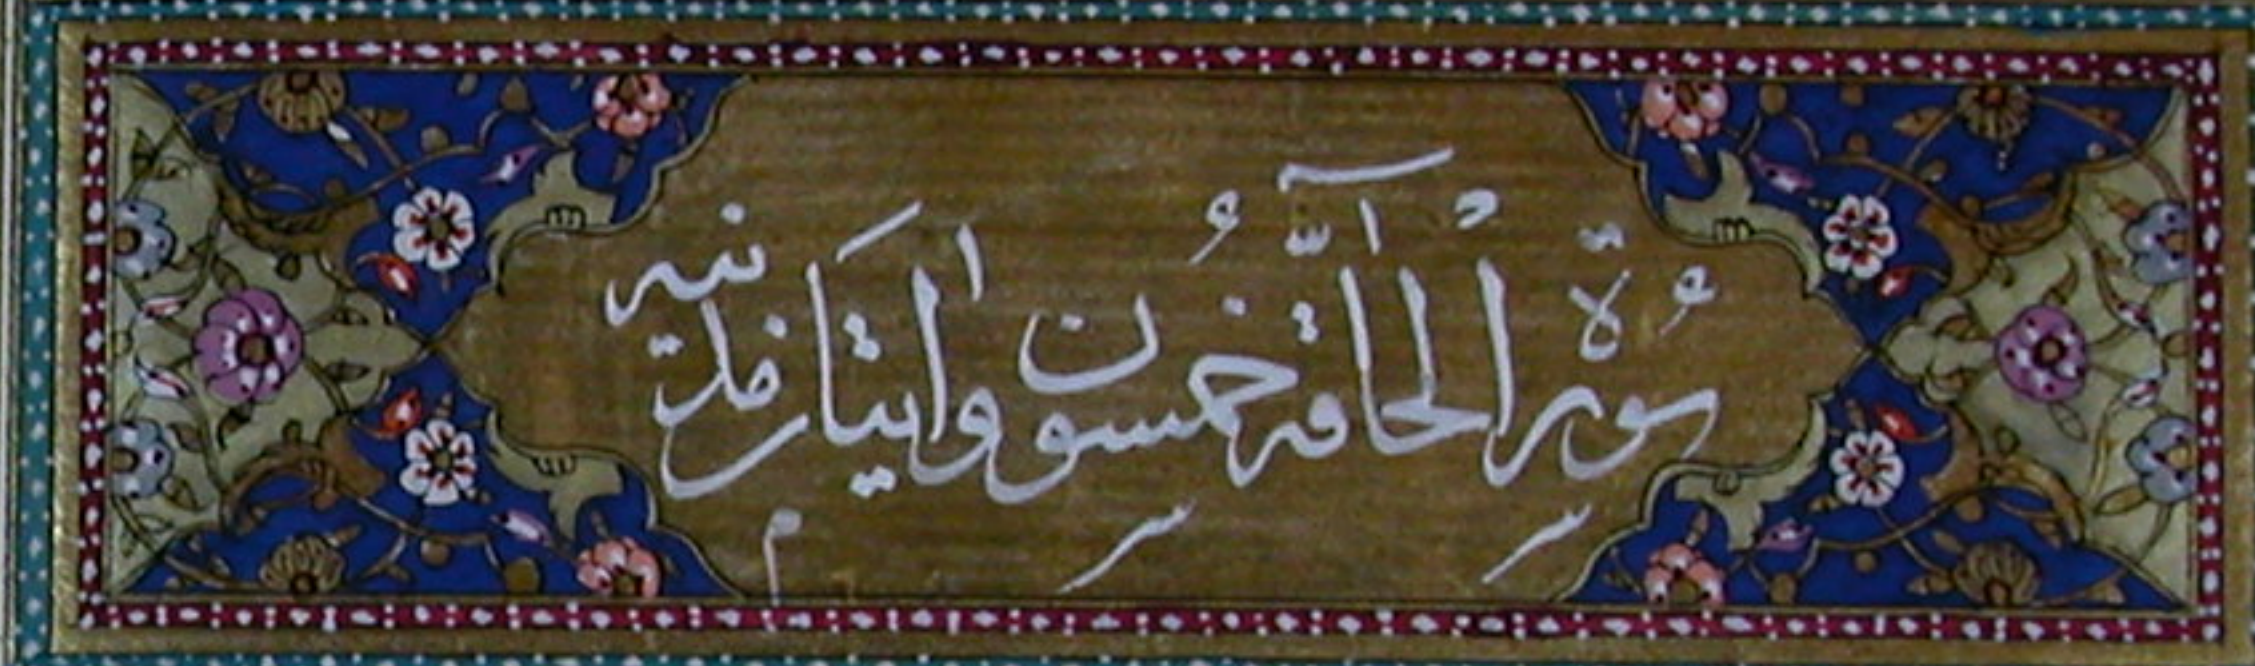 سُورَةُ الْحَاقَّةِ خَمْسُونَ وَاٰيَتَانِ مَكِّيَّة